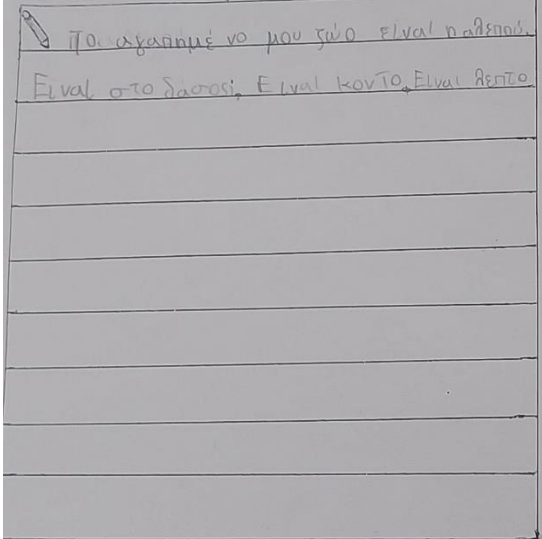 Το αγαπημέ νο μου ζώο είναι η αλεπού.
Ειναι στο δασοσι. Ειναι κοντο. Ειναι λεπτο